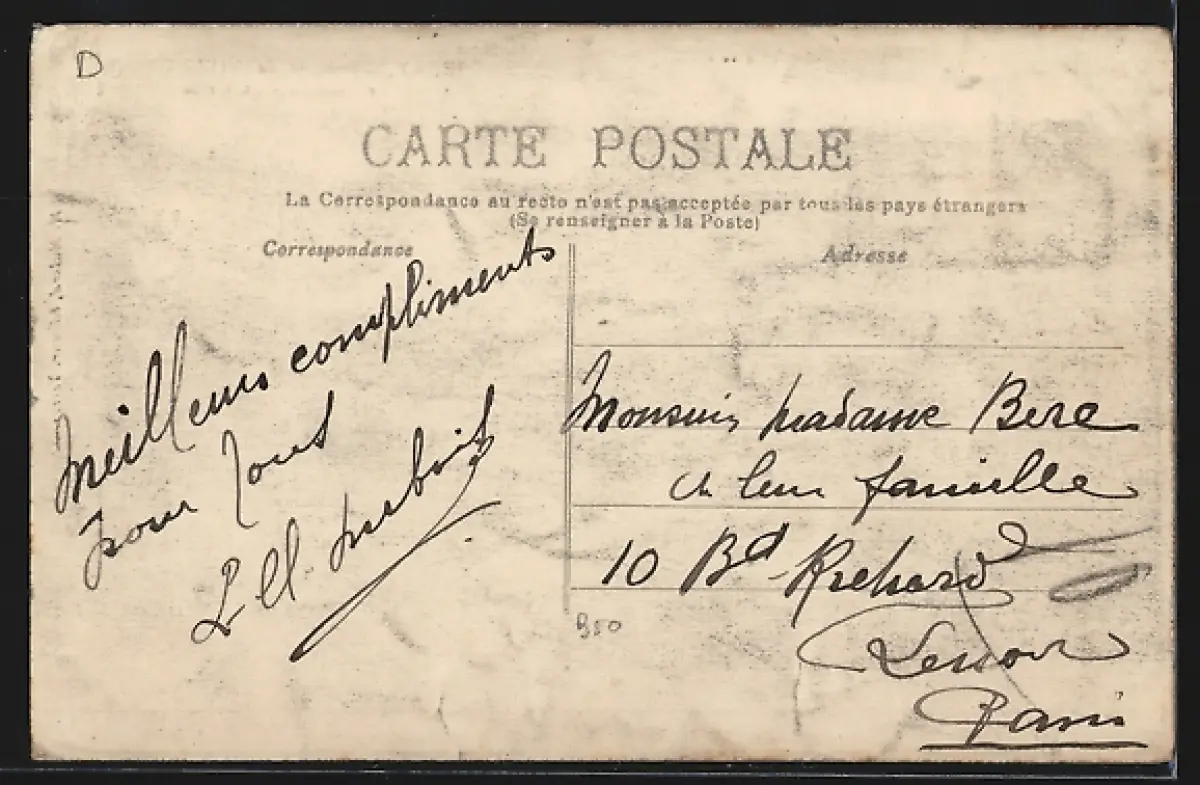 D
CARTE POSTALE
La Correspondance au recto n'est pas acceptée par tous les pays étrangers
(Se renseigner à la Poste)
Correspondance
Adresse
Meilleurs compliments
pour tous
Monsieur, Madame Bere
et leur famille
10 Bd Richard
Lenoir
Paris
950